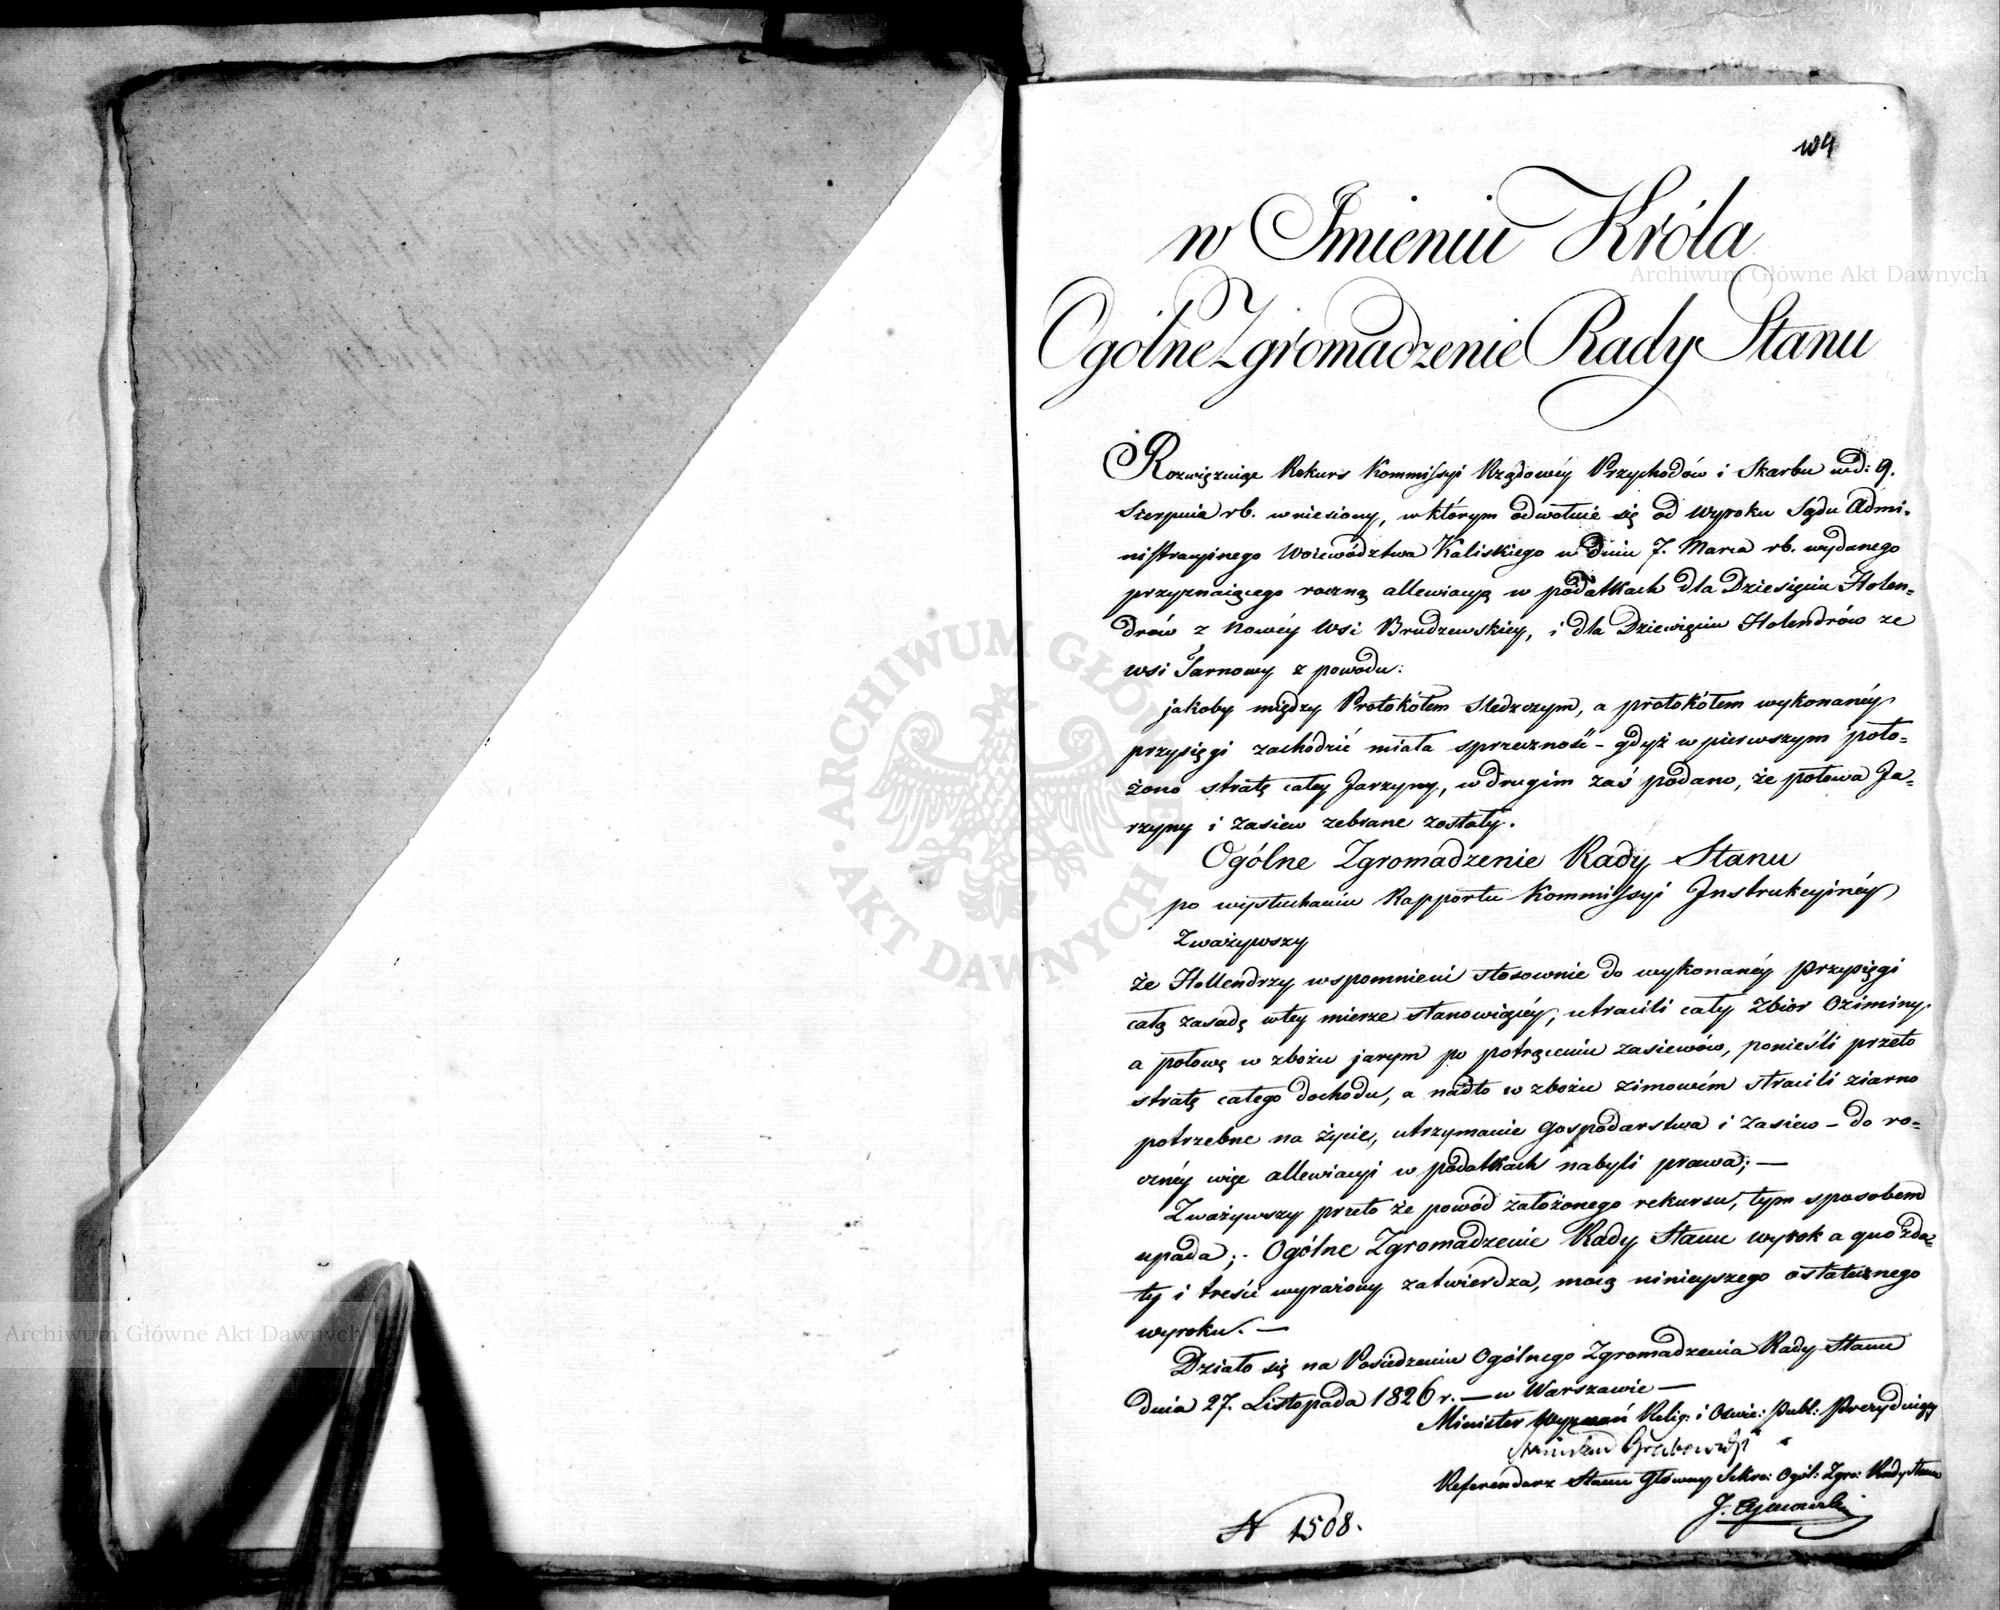 104
w Imieniu Króla
Ogólne Zgromadzenie Rady Stanu
Rozwięzuiąc Rekurs Kommissyi Rządowéy Przychodów i Skarbu w d: 9.
Sierpnia rb. wniesiony, w którym odwołuie się od Wyroku Sądu Admi-
nistracyjnego Woiewództwa Kaliskiego w dniu 7. Marca rb. wydanego
przyznaiącego roczną allewiacyą w podatkach dla Dziesięciu Holen=
drów z Nowéy Wsi Brudzewskiey, i dla Dziewięciu Holendrów ze
wsi Tarnowy z powodu:
jakoby między Protokółem Sledczym, a protokółem wykonanéy
przysięgi zachodzić miała sprzeczność – gdyż w pierwszym poło=
żono stratę całey Jarzyny, w drugim zaś podano, że połowa Ja=
rzyny i Zasiew zebrane zostały.
Ogólne Zgromadzenie Rady Stanu
po wysłuchaniu Rapportu Kommissyi Instrukcyinéy
Zważywszy
że Hollendrzy wspomnieni stosownie do wykonanéy Przysięgi
całą zasadę w tey mierze stanowiącéy, utracili cały Zbior Oziminy
a połowę w zbożu jarym po potrąceniu zasiewów, ponieśli przeto
stratę całego dochodu, a nadto w zbożu zimowém stracili ziarno
potrzebne na życie, utrzymanie Gospodarstwa i Zasiew – do ro=
cznéy więc allewiacyi w podatkach nabyli prawa; —
Zważywszy przeto że powód założonego rekursu, tym sposobem
upada; - Ogólne Zgromadzenie Rady Stanu wyrok a quo z da=
ty i treści wyrażony zatwierdza, mocą ninieyszego ostatecznego
wyroku. —
Działo się na Posiedzeniu Ogólnego Zgromadzenia Rady Stanu
dnia 27. Listopada 1826 r. — w Warszawie —
Minister Wyznań Relig: i Oświe: Publ: Prezyduiący
Stanisław Grabowski
Referendarz Stanu Główny Sekre: Ogól: Zgro: Rady Stanu
J.
N 1508.
Archiwum Główne Akt Dawnych
Archiwum Główne Akt Dawnych
ARCHIWUM GŁÓWNE AKT DAWNYCH